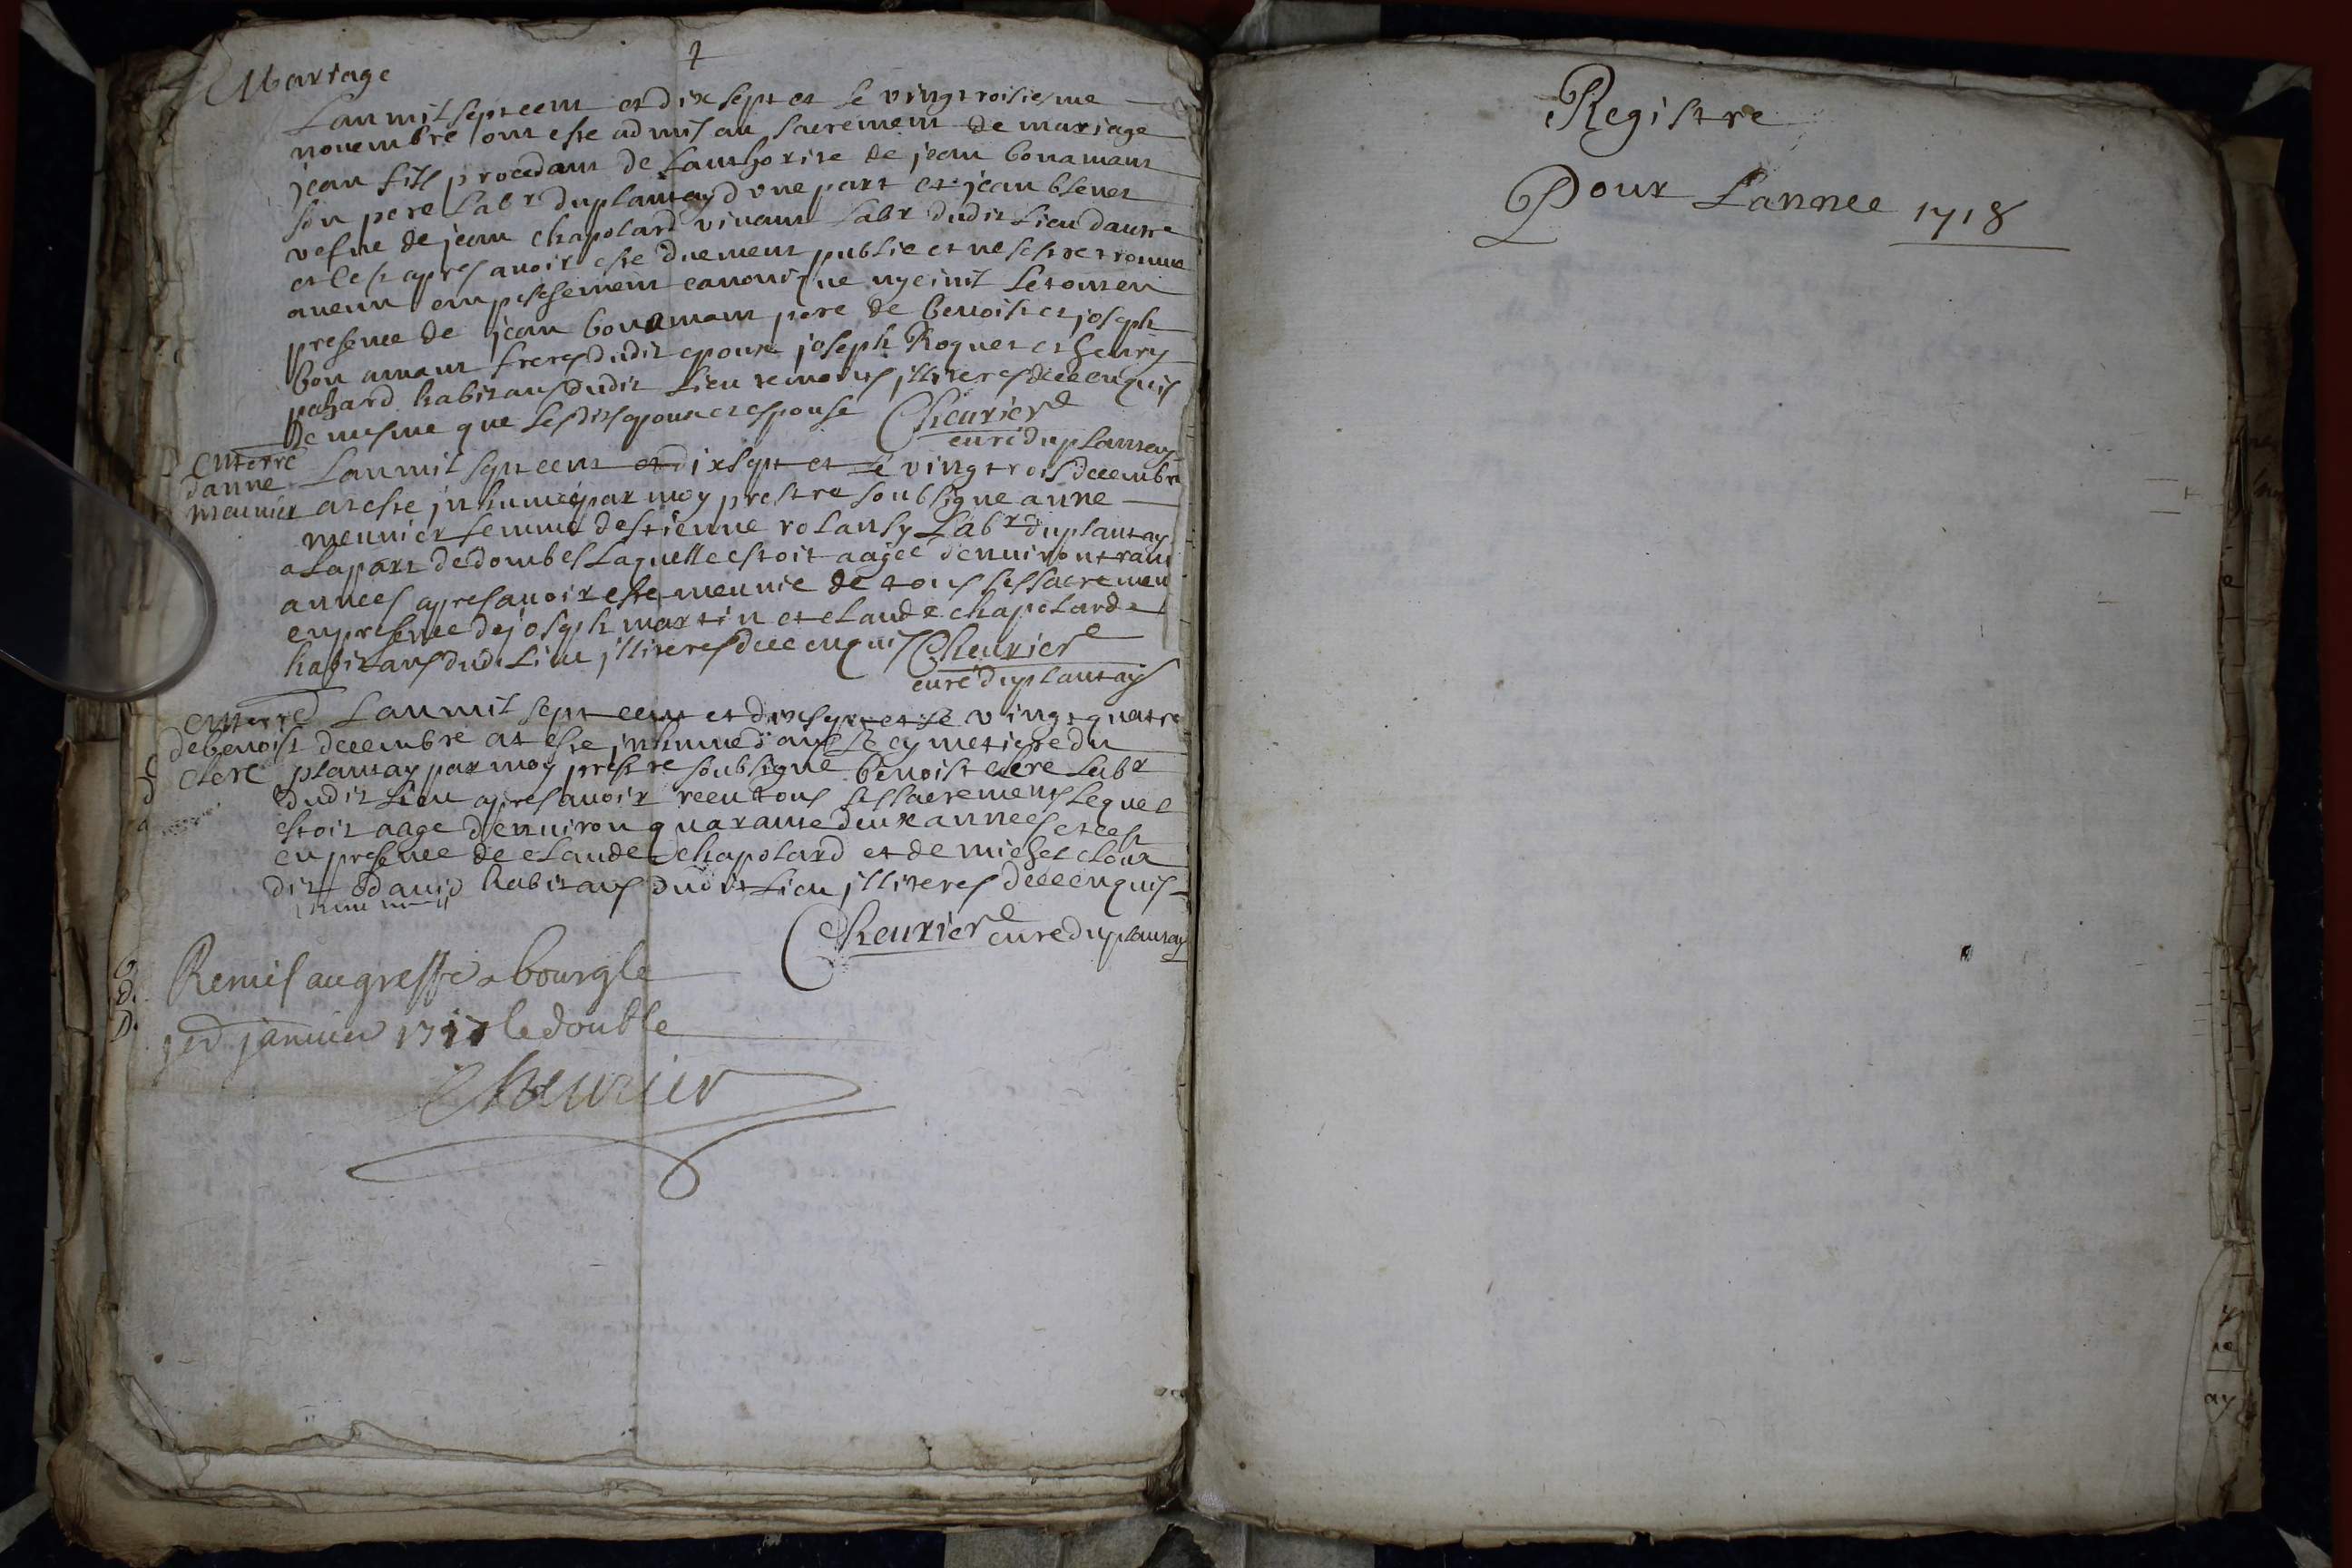 Mariage
Lan mil sept cent et dix sept et le vingtroisiesme
nouembre ont este admis au sacrement de mariage
jean fils procedant de lauthorite de jean bonamant
son pere labr du plantay dune part et jean blenet
vefue de jean chapolard viuant labr dudit lieu dautre
et ce apres auoir este duement publie et ne sest retrouue
aucun empeschement canonique ny ciuil le tout en
presence de jean bonamant pere de benoist et joseph
bon amant freres dudit epoux joseph Roguet et henry
habitans dudit lieu temoins jlliteres de ce enquis
de mesme que lesdits epoux et espouse Cheurier
curé du plantay
enterre
danne
meunier
Lan mil sept cent et dix sept et le vingt trois decembre
at este jnhumée par moy prestre soubsigne anne
meunier femme destienne rolansy Labr du plantay
a la part de dombes laquelle estoit aagée denuiron
annees apres auoir este meunie de tous ses sacremen
en presence de joseph martin et claude chapolard
habitans dud. Lieu jlliteres de ce enquis Cheurier
curé du plantay
enterré
de benoist
clerc
Lan mil sept cent et dix sept et le vingt quatre
decembre at este jnhumé dans le cymetiere du
plantay par moy prestre soubsigné benoist clerc Labr
dudit Lieu apres auoir receu tous ses sacrements lequel
estoit aage denuiron quarante deux annees et ce
en presence de claude chapolard et de michel cloux
dit dauid habitans dudit Lieu jlliteres de ce enquis
Cheurier curé du plantay
Remis au greffe a bourg le
janvier 1717 le double
Cheurier
Registre
Pour L'annee 1718